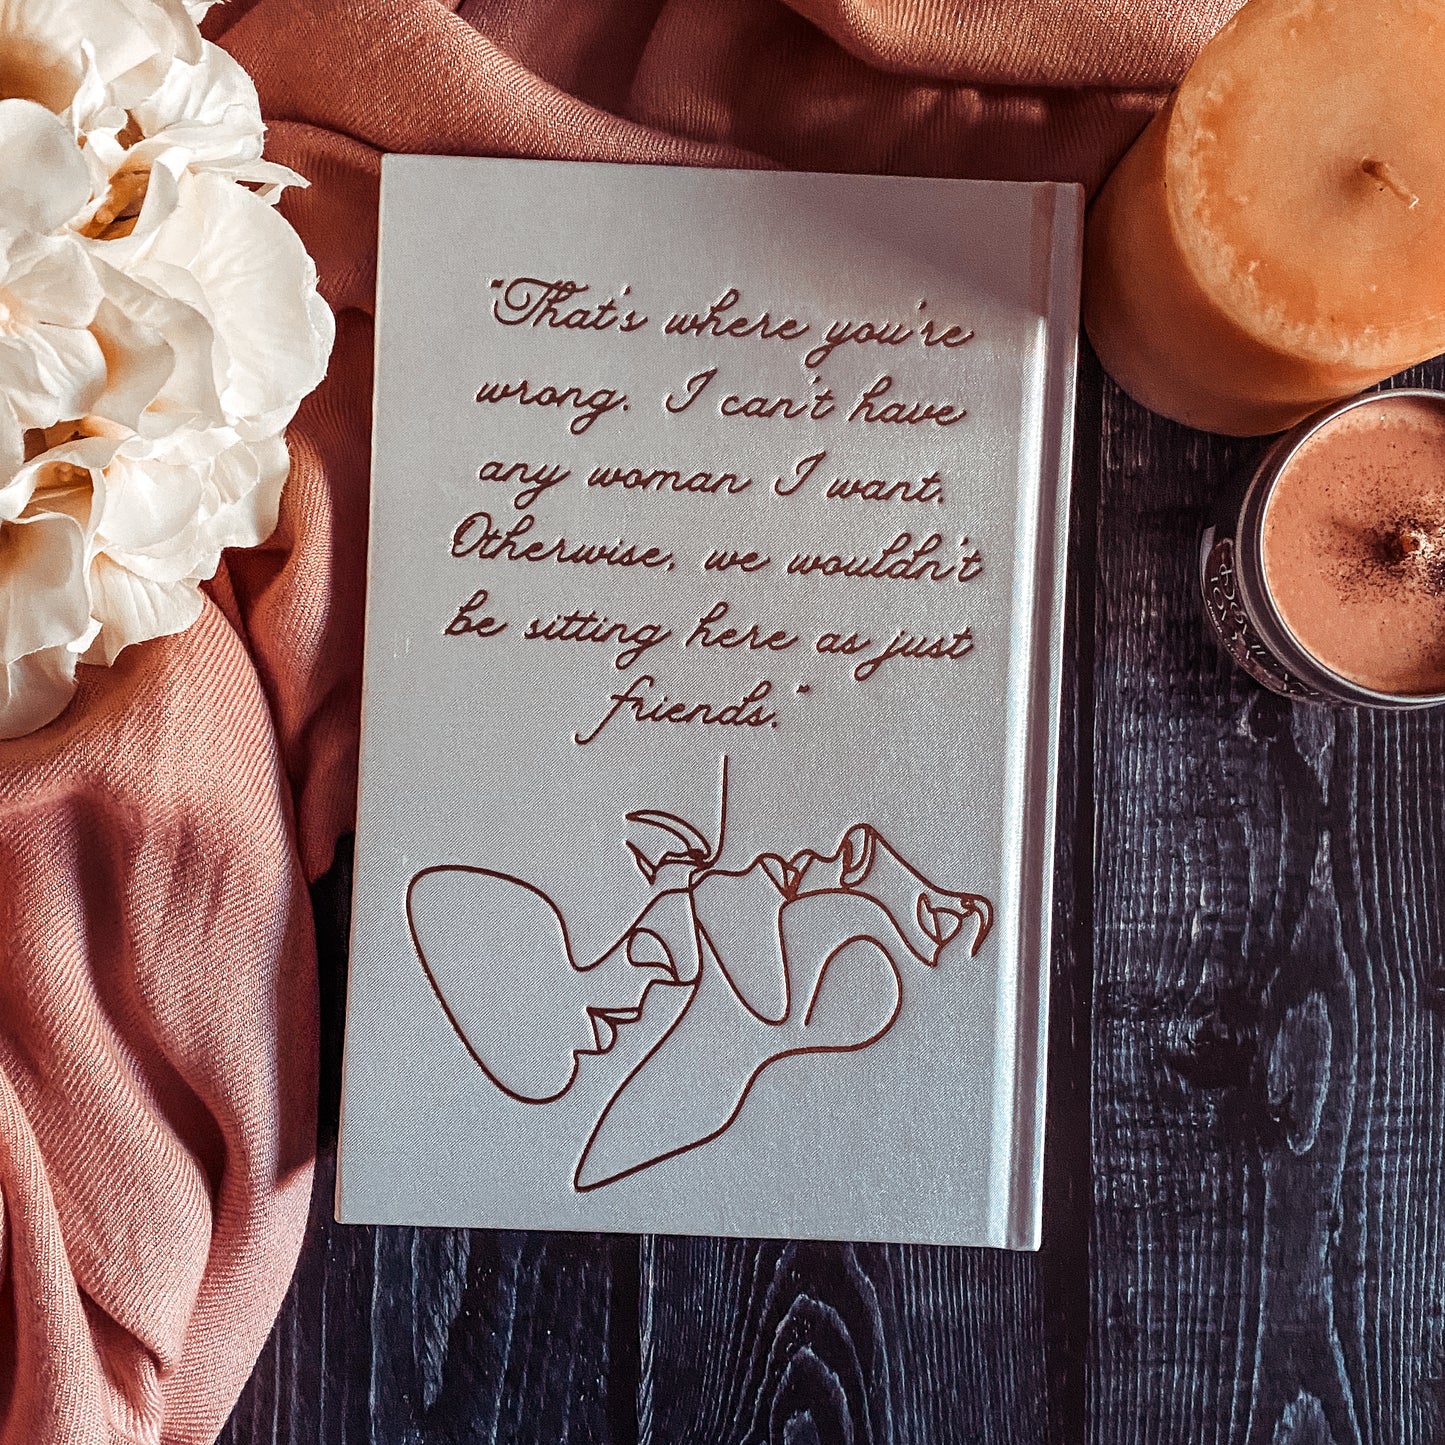 "That's where you're
wrong. I can't have
any woman I want.
Otherwise, we wouldn't
be sitting here as just
friends."